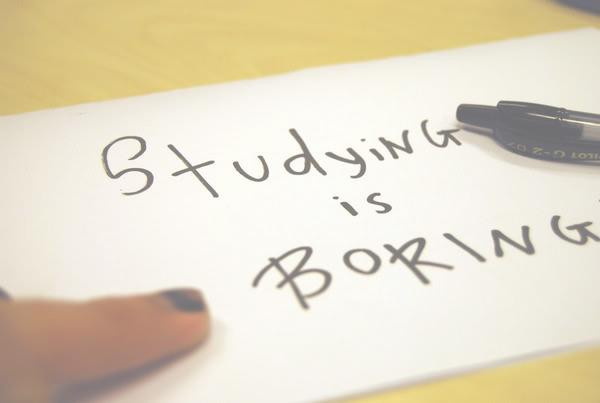 StudyiNG
is
BORING
PILOT G-2 07